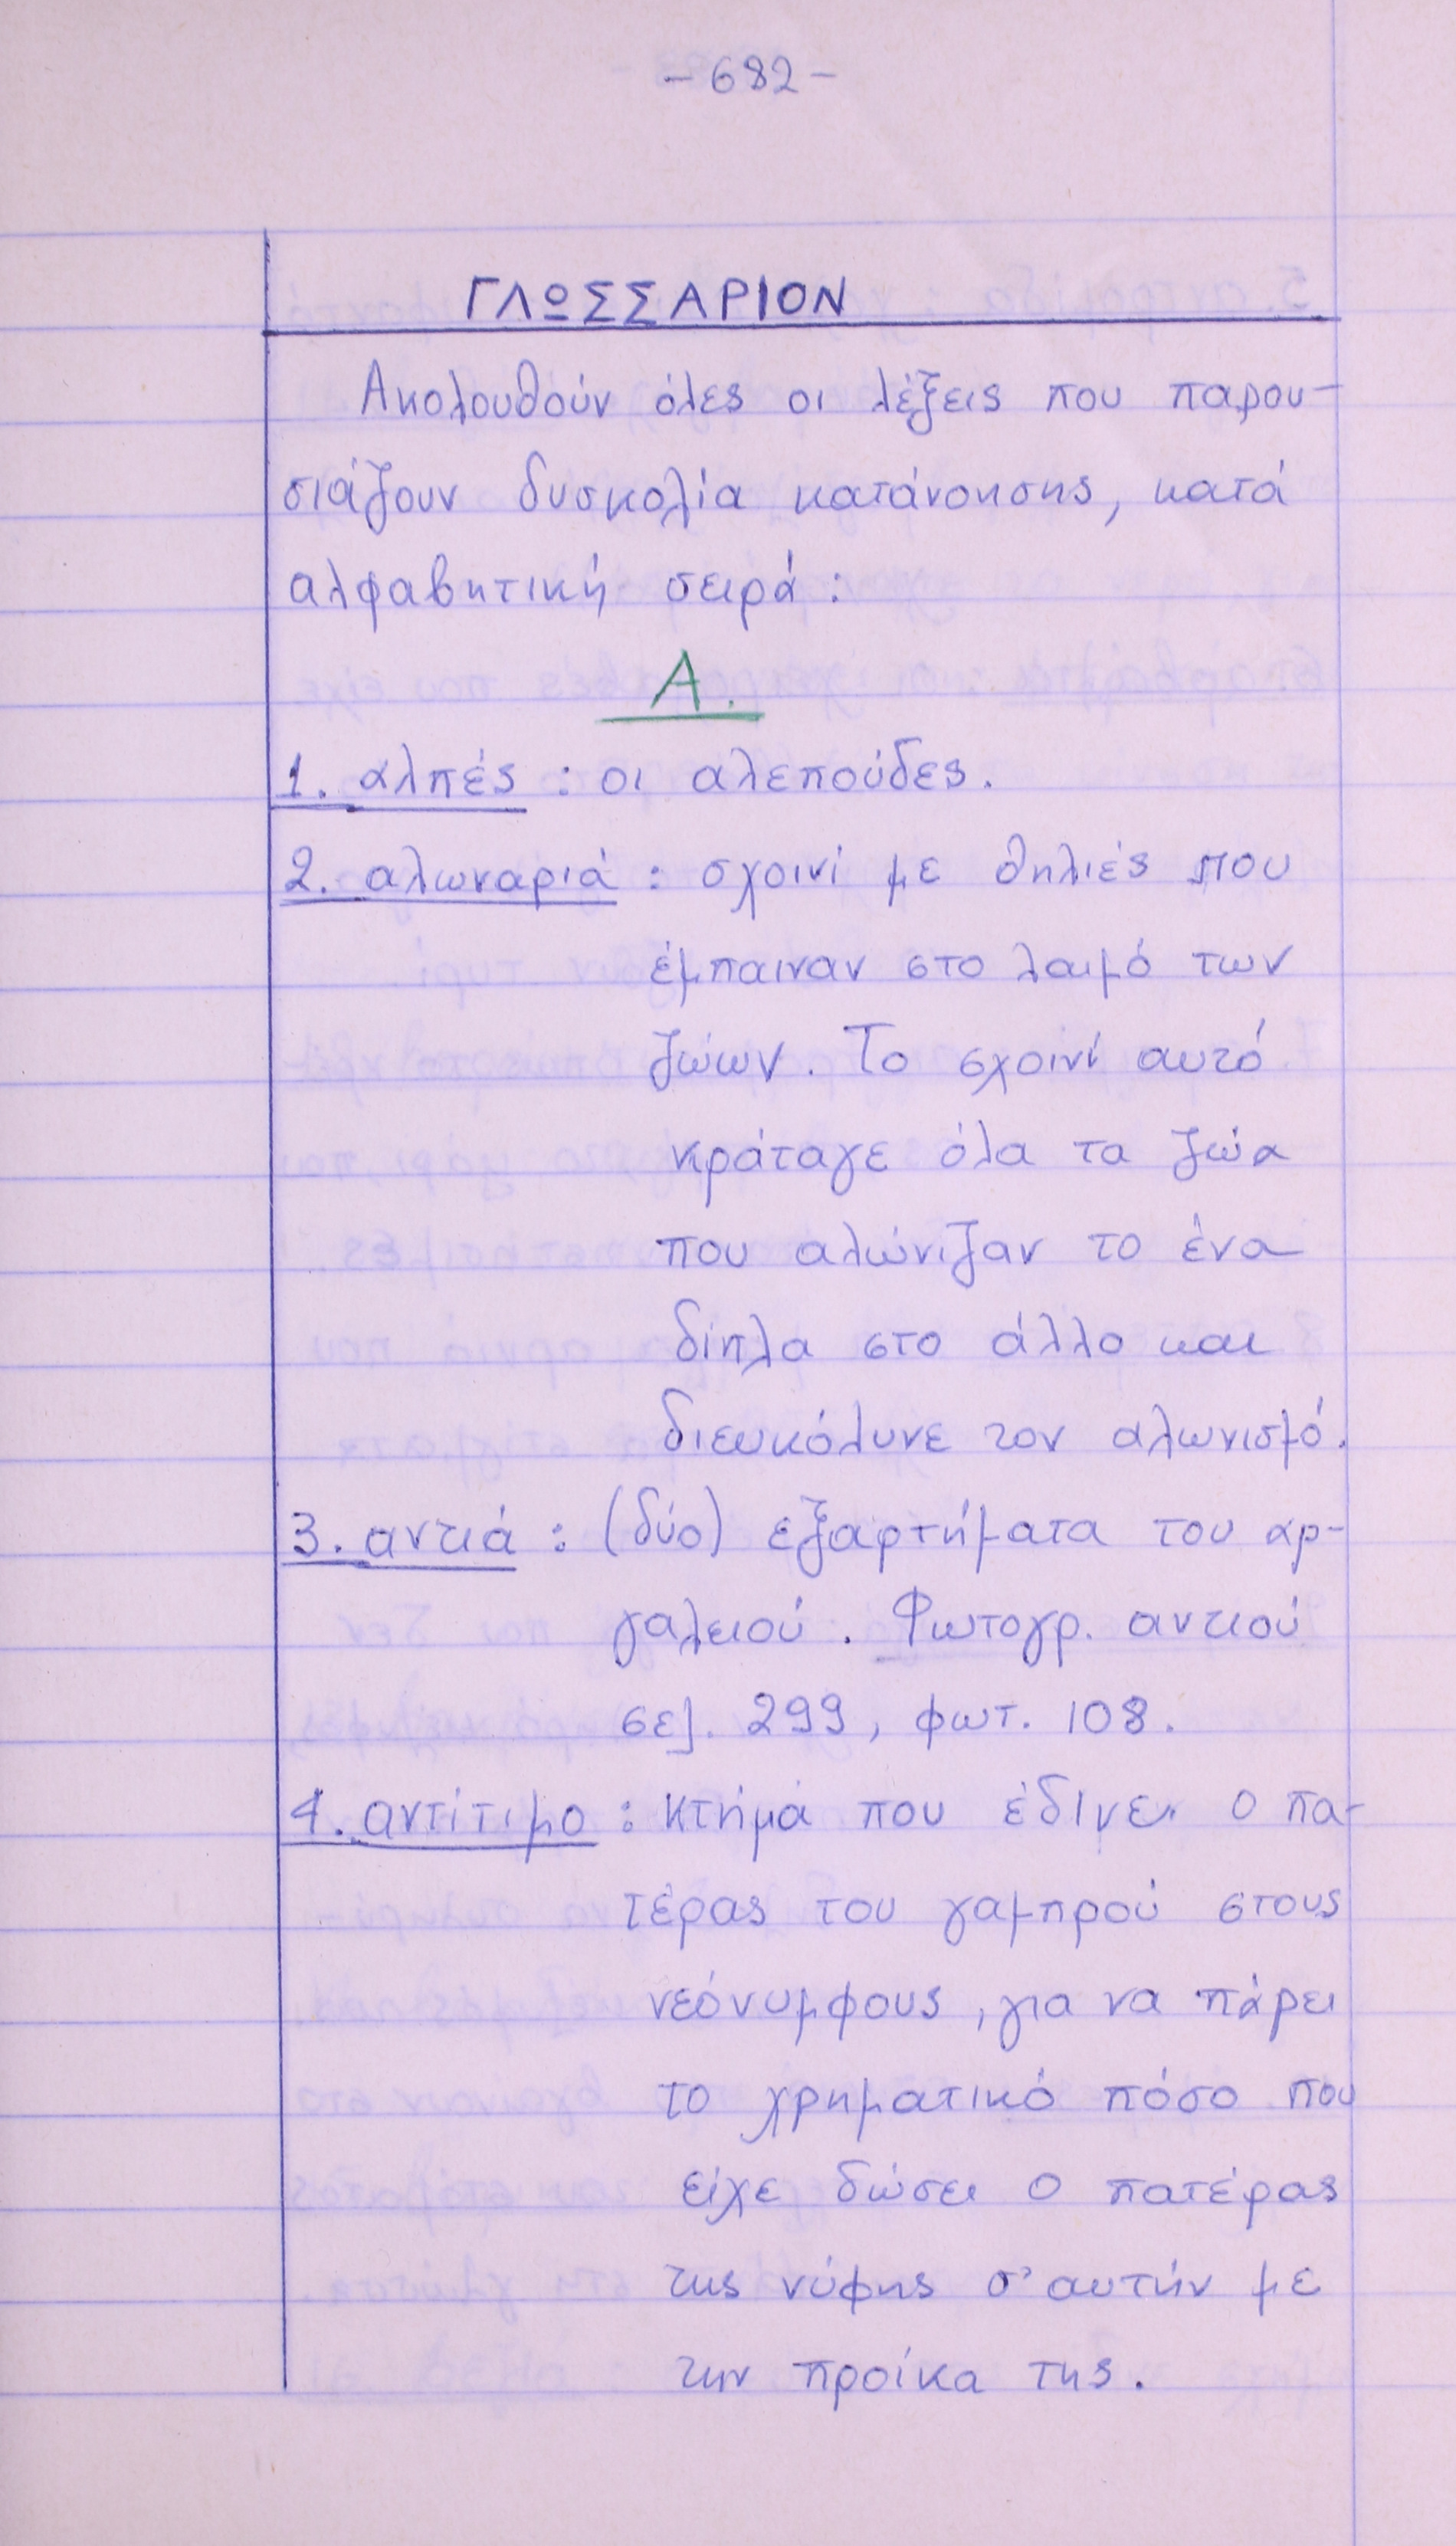 - 682 -
ΓΛΩΣΣΑΡΙΟΝ
Ακολουθούν όλες οι λέξεις που παρου-
σιάζουν δυσκολία κατάνοησης, κατά
αλφαβητική σειρά :
Α.
1. αλπές : οι αλεπούδες.
2. αλωναριά : σχοινί με θηλιές που
έμπαιναν στο λαιμό των
ζώων. Το σχοινί αυτό
κράταγε όλα τα ζώα
που αλώνιζαν το ένα
δίπλα στο άλλο και
διευκόλυνε τον αλωνισμό.
3. αντιά : (δύο) εξαρτήματα του αρ-
γαλειού. Φωτογρ. αντιού
σελ. 299, φωτ. 108.
4. αντίτιμο : κτήμα που έδινε ο πα-
τέρας του γαμπρού στους
νεόνυμφους, για να πάρει
το χρηματικό πόσο που
είχε δώσει ο πατέρας
της νύφης σ' αυτήν με
την προίκα της.